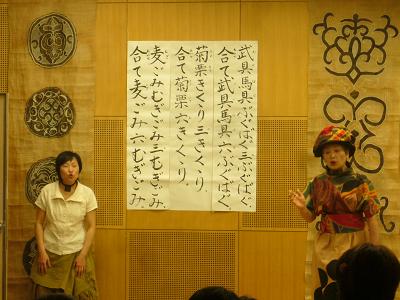 武具馬具ぶぐばぐ三ぶぐばぐ、
合て武具馬具六ぶぐばぐ。
菊栗きくくり三きくくり、
合て菊栗六きくくり。
麦ごみむぎごみ三むぎごみ、
合て麦ごみ六むぎごみ。